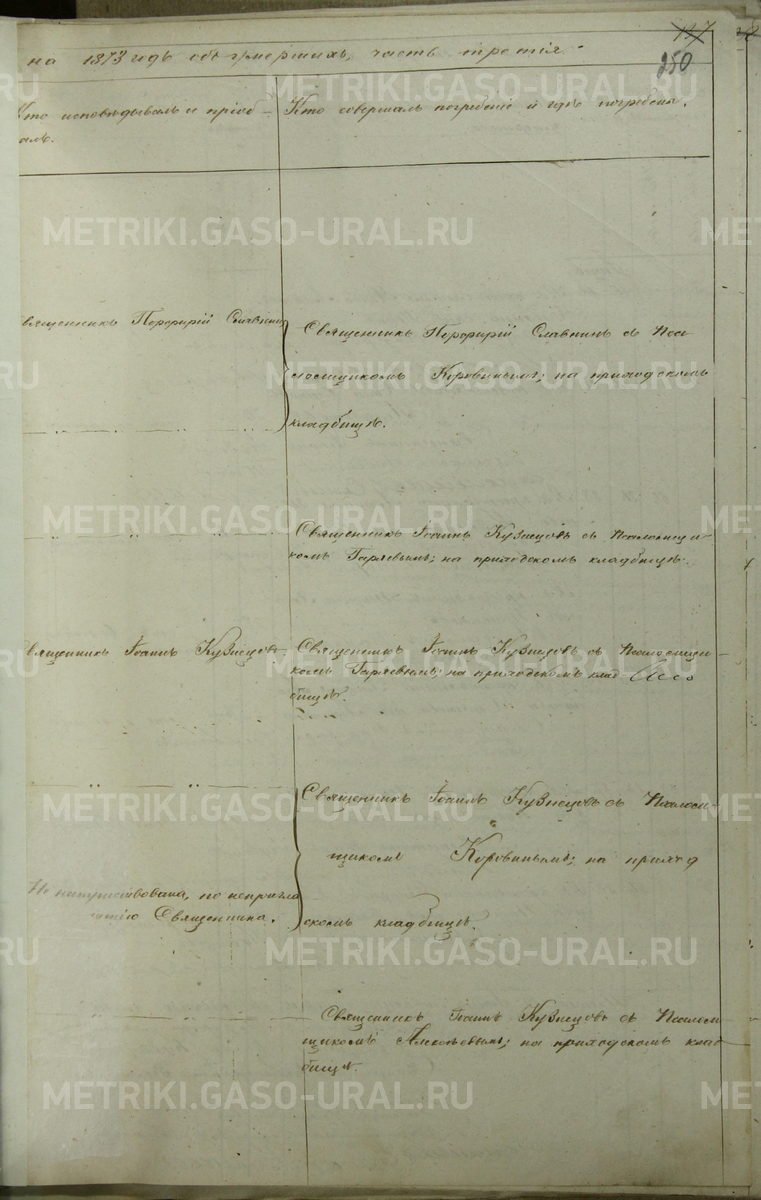 на 1873 годъ объ умершихъ, часть третія.
197
250
Кто исповѣдывалъ и пріоб-
щалъ.
Кто совершалъ погребеніе и гдѣ погребены.
Священникъ Порфирій Славнинъ
Священникъ Порфирій Славнинъ съ Пса
ломщикомъ Коровинымъ; на приходскомъ
кладбищѣ.
Священникъ Іоаннъ Кузнецовъ съ Псаломщи-
комъ Гаряевымъ; на приходскомъ кладбищѣ.
Священникъ Іоаннъ Кузнецовъ
Священникъ Іоаннъ Кузнецовъ съ Псаломщи-
комъ Гаряевымъ; на приходскомъ клад
бищѣ.
Священникъ Іоаннъ Кузнецовъ съ Псалом-
щикомъ Коровинымъ; на приход
скомъ кладбищѣ.
Не напутствована, по непригла
шенію Священника.
Священникъ Іоаннъ Кузнецовъ съ Псалом
щикомъ Алексѣевымъ; на приходскомъ клад
бищѣ.
METRIKI.GASO-URAL.RU